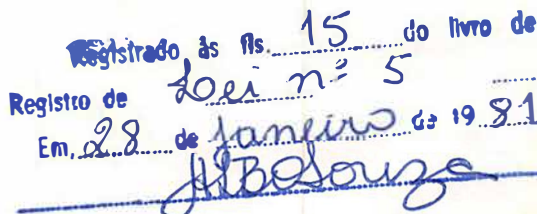 Registrado às fls. 15 do livro de
Registro de Lei nº 5
Em, 28 de Janeiro de 19 81